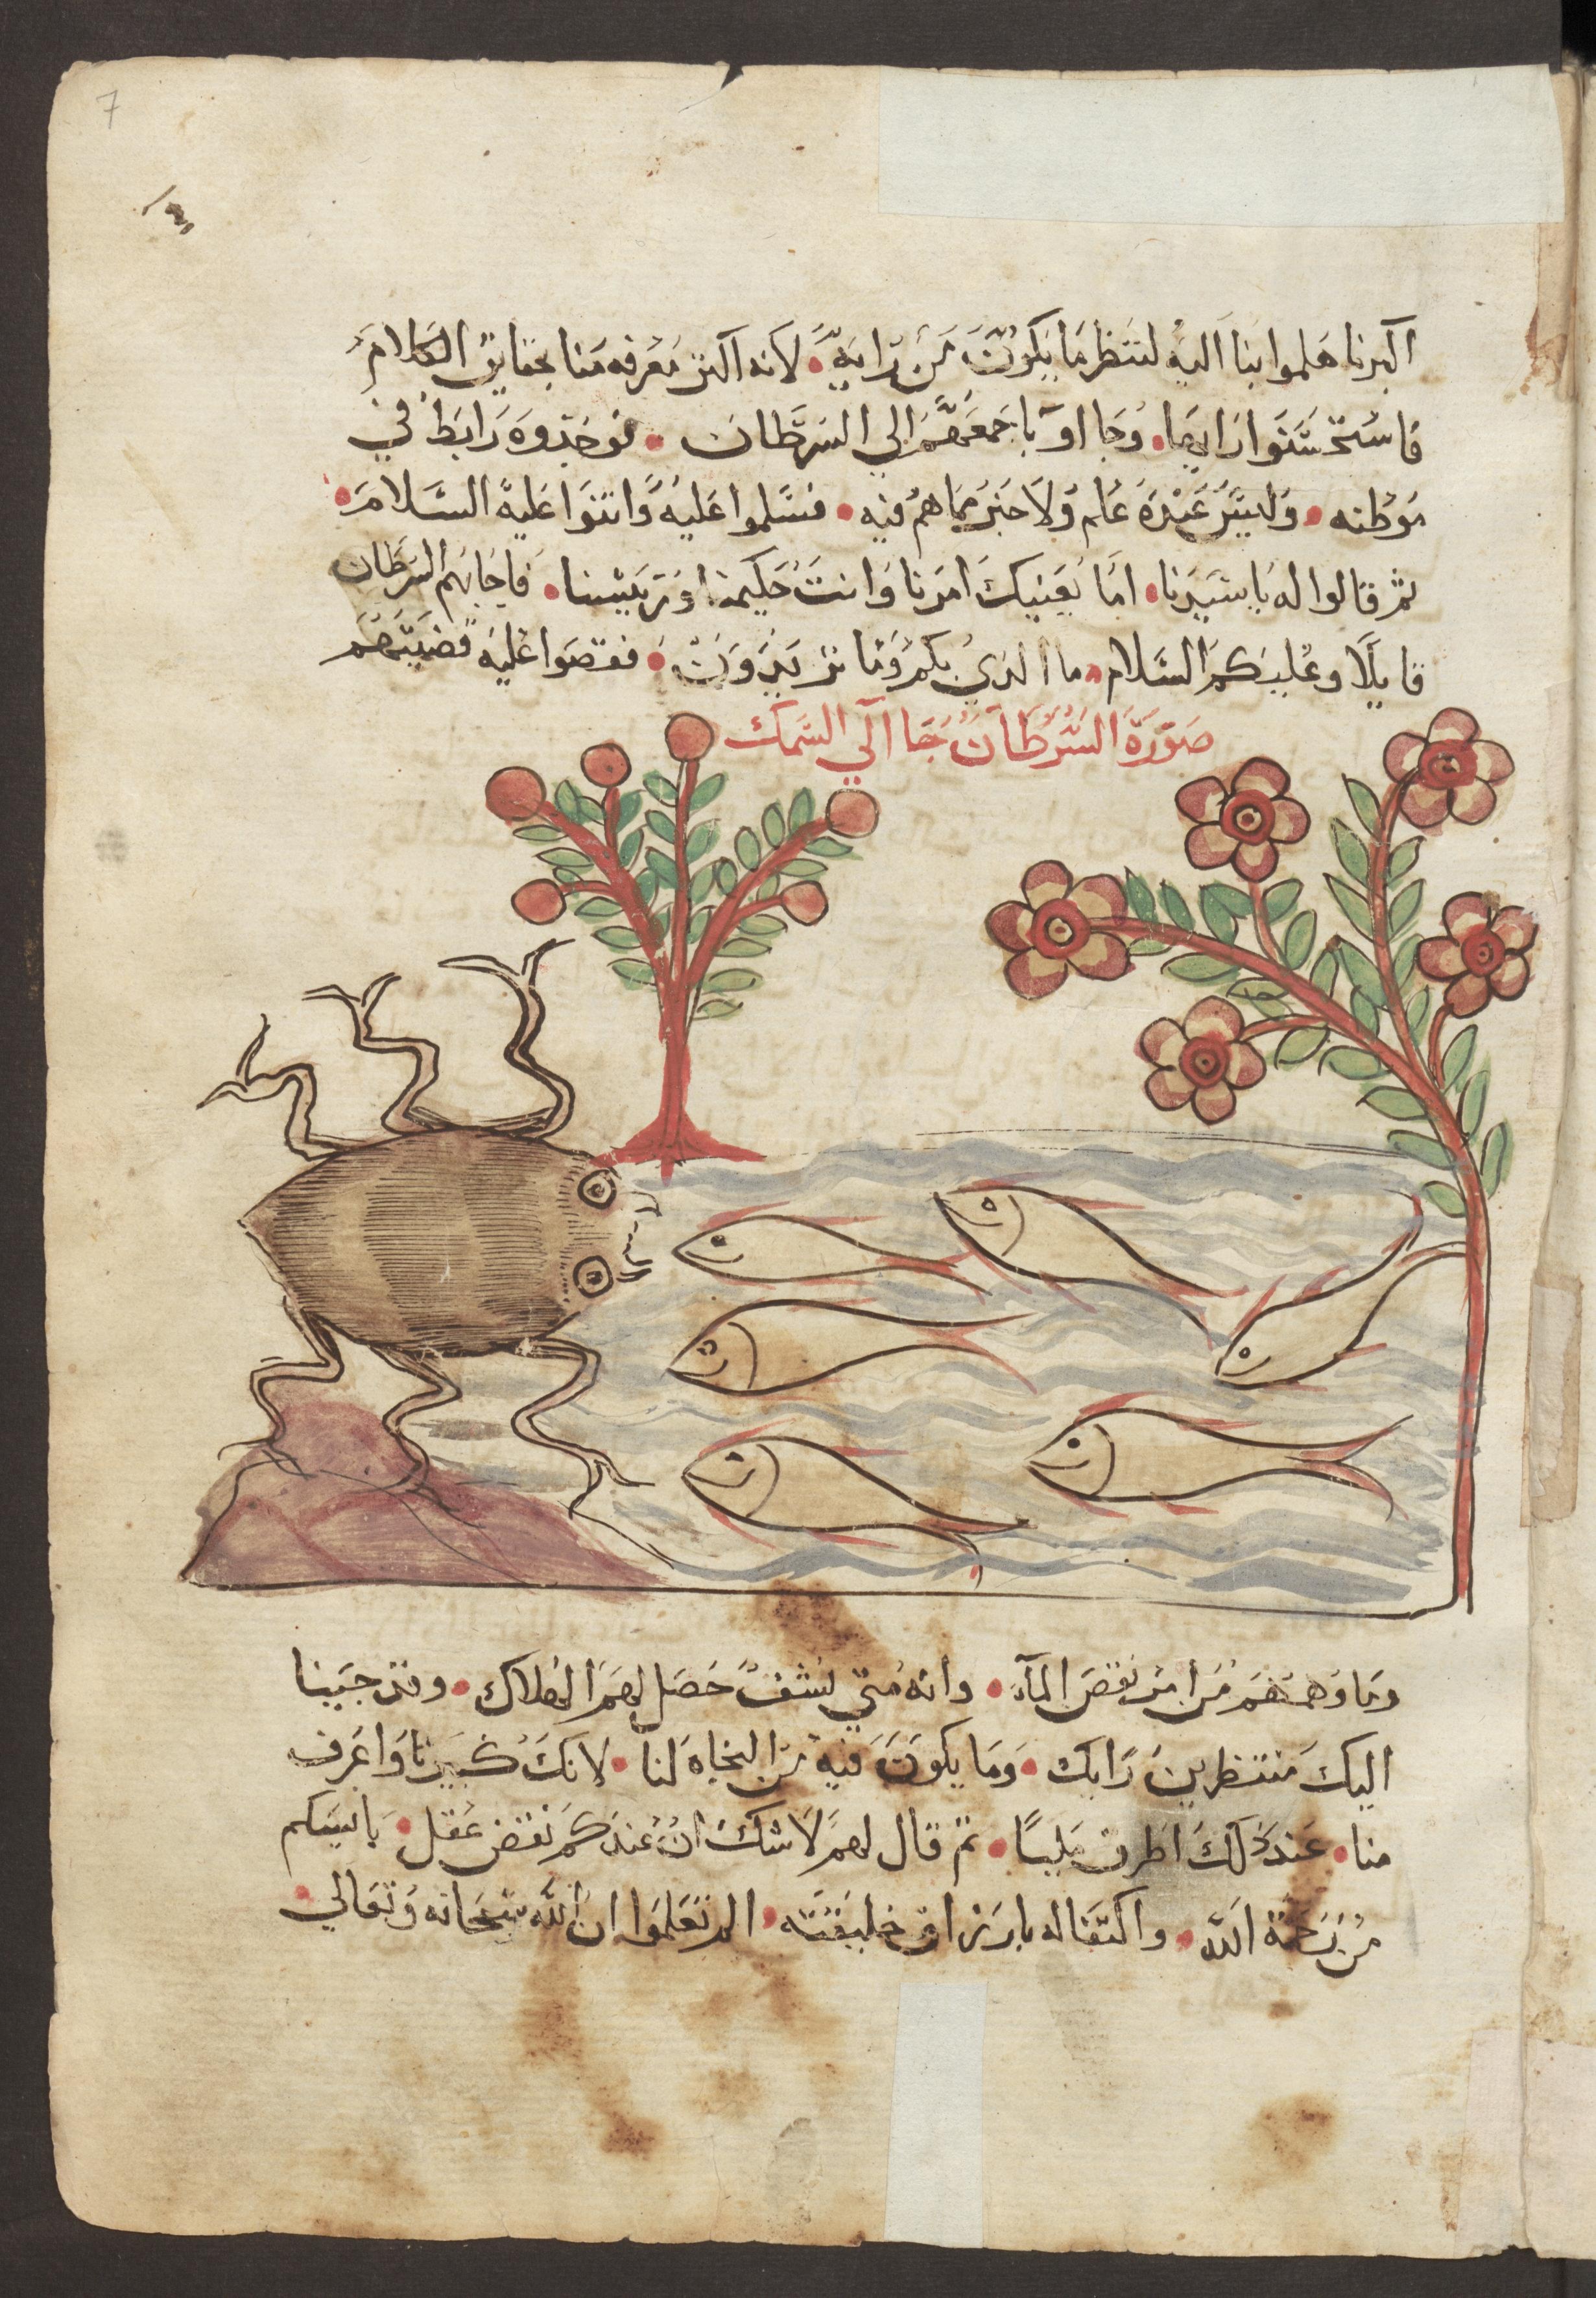 7
اكبرنا هلموا بنا اليه لننظر ما يكون من رايه لانه اكثر معرفه منا بحقايق الكلام
فاستحسنوا رايها وجااوا باجمعهم الي السرطان فوجدوه رابط في
موطنه وليس عنده علم ولا خبر مما هم فيه فسلموا عليه واثنوا عليه السلام
ثم قالوا له يا سيدنا اما يعنيك امرنا وانت حكيمنا وريسنا فاجابهم السرطان
قايلا وعليكم السلام ما الذي بكم وما تريدون فقصوا عليه قضيتهم
صورة السرطان جا الي السمك
وما وهمهم من امر نقص المآء وانه متي نشف حصل لهم الهلاك وقد جينا
اليك منتظرين رايك وما يكون فيه من النجاه لنا لانك كبيرنا واعرف
منا عند ذلك اطرق مليا ثم قال لهم لا شك ان عندكم نقص عقل باييسكم
من رحمة الله واكتفاله بارزاق خليقته الم تعلموا ان الله سبحانه وتعالي